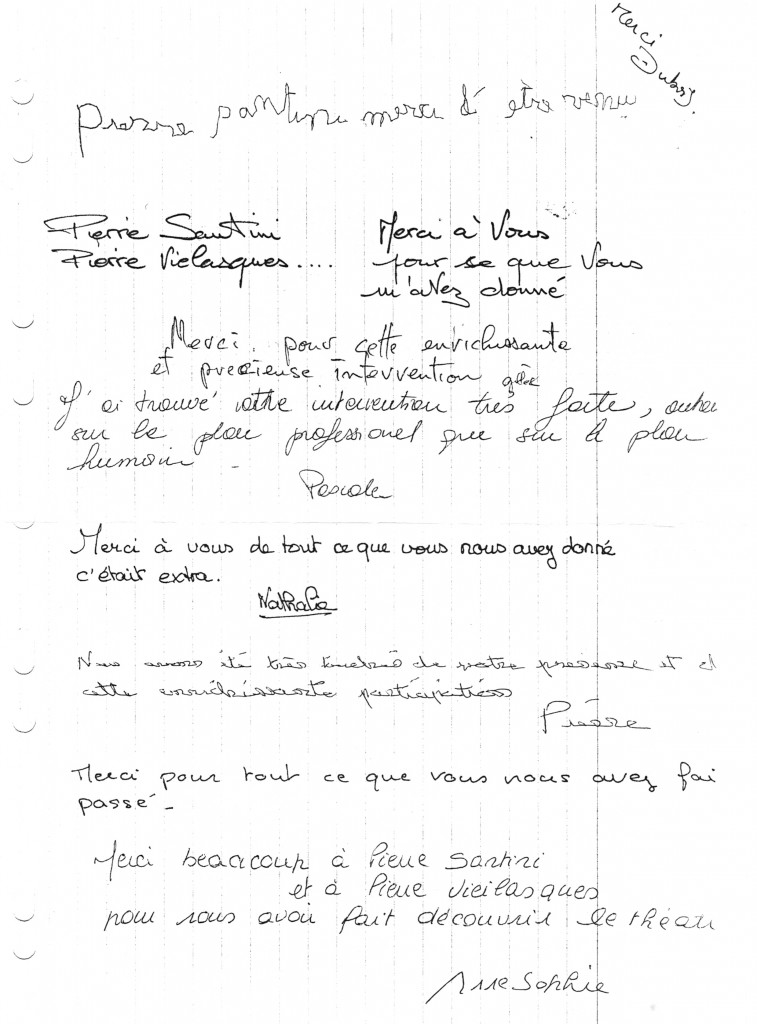 Merci
merci d'être venu
Pierre Santini Merci à Vous
Pierre Vielasques.... pour se que Vous
m'avez donné
Merci pour cette enrichissante
et precieuse intervention
J'ai trouvé votre intervention très forte, autan
sur le plan professionel que sur le plan
humain
Pascale
Merci à vous de tout ce que vous nous avez donné
c'était extra.
Nathalie
Nous avons été très touchés de votre presense et
cette enrichissante participation
Pierre
Merci pour tout ce que vous nous avez fai
passé-
Merci beaucoup à Pierre Santini
et à Pierre Vieilasques
pour nous avoir fait découvrir le théatr
Anne Sophie